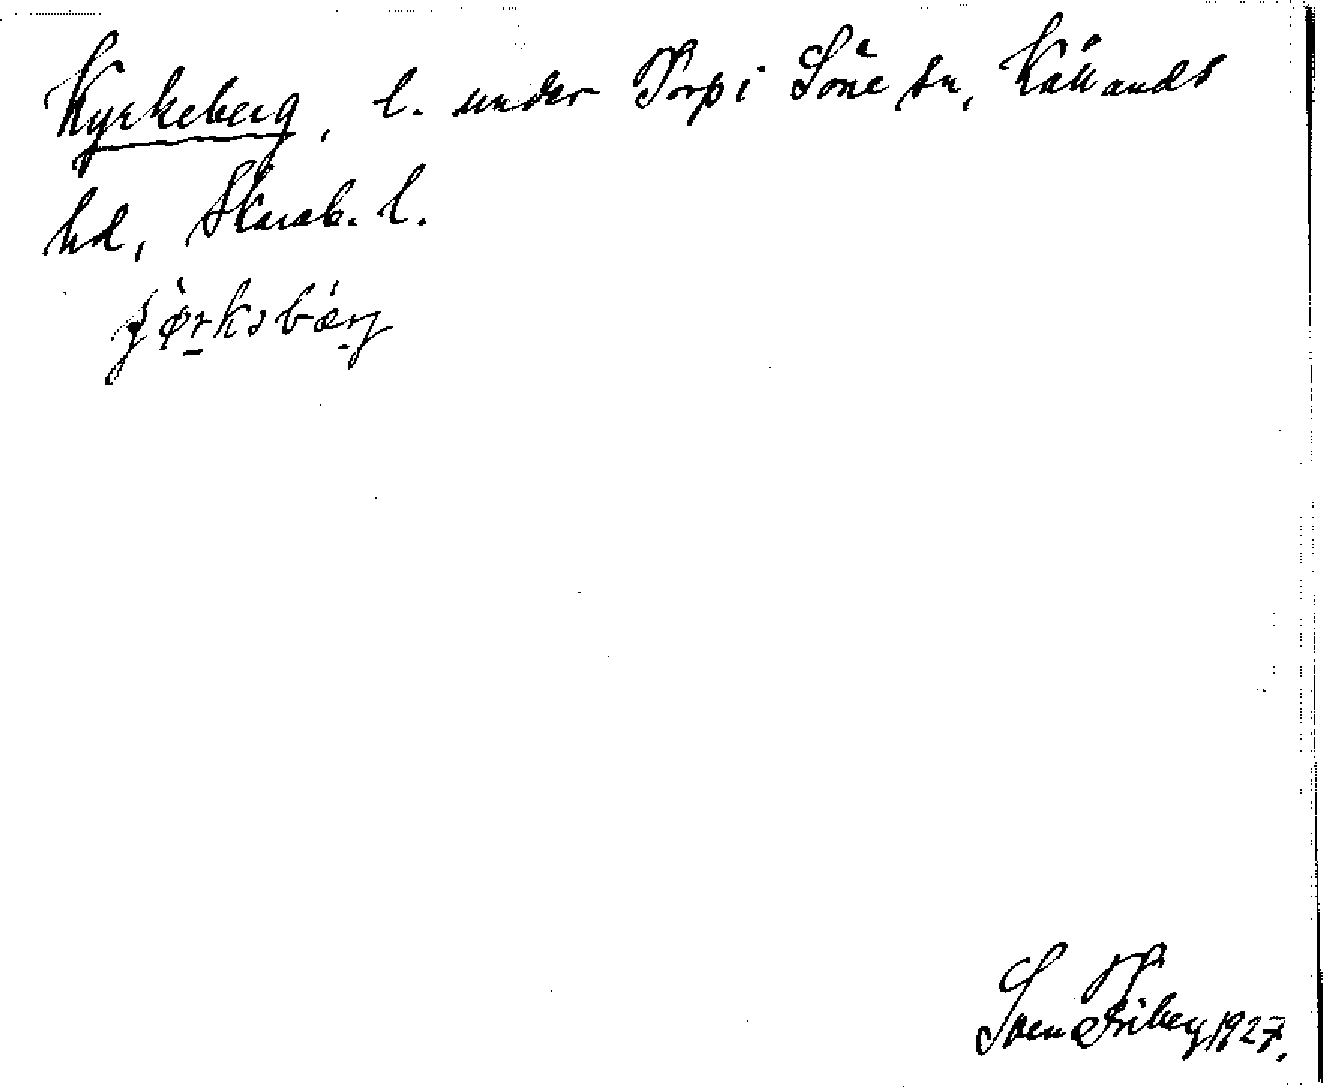 Kyrkeberg, l. under Torp i Söne sn, Kållands
hd, Skarab. l.
Sven Friberg 1927.